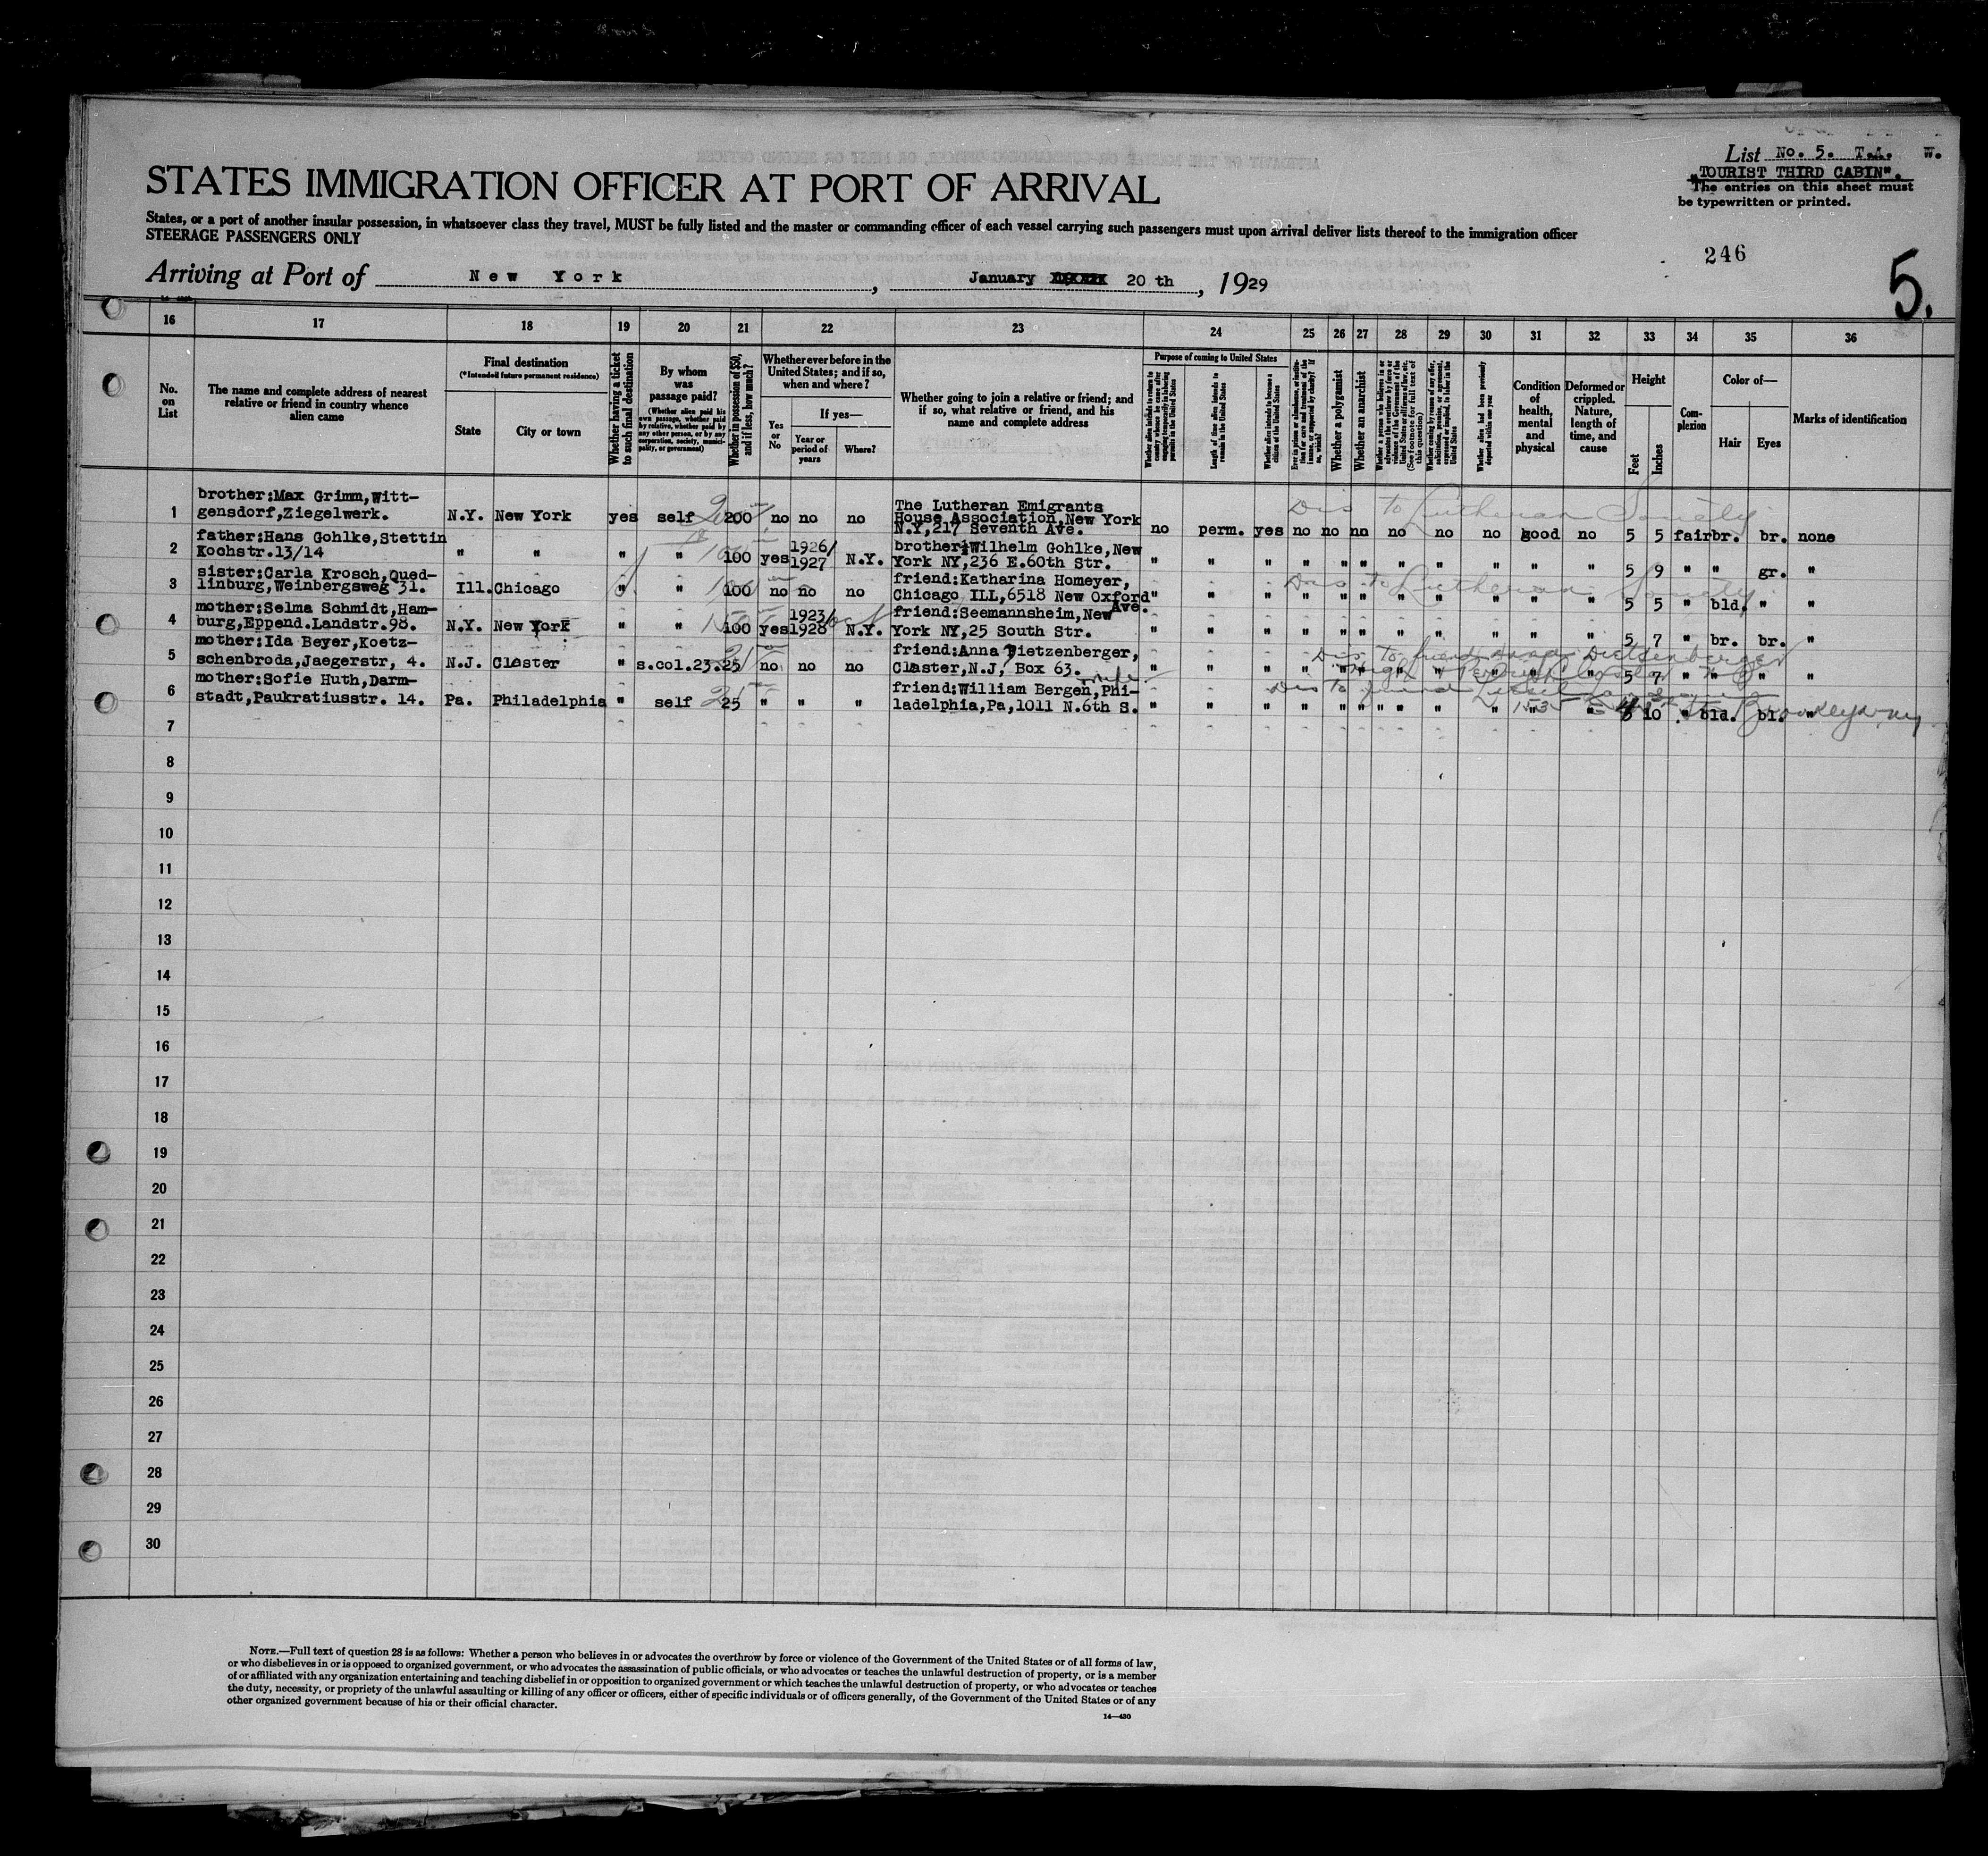 List No. 5. T.A. W.
"TOURIST THIRD CABIN".
The entries on this sheet must
be typewritten or printed.
STATES IMMIGRATION OFFICER AT PORT OF ARRIVAL
States, or a port of another insular possession, in whatsoever class they travel, MUST be fully listed and the master or commanding officer of each vessel carrying such passengers must upon arrival deliver lists thereof to the immigration officer
STEERAGE PASSENGERS ONLY
246
5.
Arriving at Port of New York, January 20 th, 1929
16 17 18 19 20 21 22 23 24 25 26 27 28 29 30 31 32 33 34 35 36
No. on List
The name and complete address of nearest relative or friend in country whence alien came
Final destination
(*Intended future permanent residence)
State
City or town
Whether having a ticket to such final destination
By whom was passage paid?
(Whether alien paid his own passage, whether paid by relative, whether paid by any other person, or by any corporation, society, municipality, or government)
Whether in possession of $50, and if less, how much?
Whether ever before in the United States; and if so, when and where?
Yes or No
If yes—
Year or period of years
Where?
Whether going to join a relative or friend; and if so, what relative or friend, and his name and complete address
Purpose of coming to United States
Length of time alien intends to remain in the United States
Whether alien intends to become a citizen of the United States
Whether a polygamist
Whether an anarchist
Whether alien had been previously deported within one year
Condition of health, mental and physical
Deformed or crippled. Nature, length of time, and cause
Height
Feet
Inches
Complexion
Color of—
Hair
Eyes
Marks of identification
1 brother:Max Grimm,Witt-
gensdorf,Ziegelwerk. N.Y. New York yes self 200 no no no
The Lutheran Emigrants
House Association,New York
N.Y,217 Seventh Ave. no perm. yes no no no no no no good no 5 5 fair br. br. none
Dis to Lutheran Society
2 father:Hans Gohlke,Stettin
Kochstr.13/14 " " " " 100 yes 1926/
1927 N.Y.
brother:Wilhelm Gohlke,New
York NY,236 E.60th Str. " " " " " " " " " " " 5 9 " " gr. "
3 sister:Carla Krosch,Qued-
linburg,Weinbergsweg 31. Ill. Chicago " " 100 no no no
friend:Katharina Homeyer,
Chicago ILL,6518 New Oxford
Ave. " " " " " " " " " " " 5 5 " bld. " "
Dis to Lutheran Society
4 mother:Selma Schmidt,Ham-
burg,Eppend.Landstr.98. N.Y. New York " " 100 yes 1923/
1928 N.Y.
friend:Seemannsheim,New
York NY,25 South Str. " " " " " " " " " " " 5 7 " br. br. "
5 mother:Ida Beyer,Koetz-
schenbroda,Jaegerstr, 4. N.J. Claster " s.col.23. 25 no no no
friend:Anna Dietzenberger,
Claster,N.J, Box 63. " " " " " " " " " " " 5 7 " " " "
Dis to friend Anna Dietzenberger
6 mother:Sofie Huth,Darm-
stadt,Paukratiusstr. 14. Pa. Philadelphia " self 25 " " "
friend:William Bergen,Phi-
ladelphia,Pa,1011 N.6th S. " " " " " " " " " " " 10 " bld. bl. "
Dis to friend
7
8
9
10
11
12
13
14
15
16
17
18
19
20
21
22
23
24
25
26
27
28
29
30
NOTE.—Full text of question 28 is as follows: Whether a person who believes in or advocates the overthrow by force or violence of the Government of the United States or of all forms of law,
or who disbelieves in or is opposed to organized government, or who advocates the assassination of public officials, or who advocates or teaches the unlawful destruction of property, or is a member
of or affiliated with any organization entertaining and teaching disbelief in or opposition to organized government or which teaches the unlawful destruction of property, or who advocates or teaches
the duty, necessity, or propriety of the unlawful assaulting or killing of any officer or officers, either of specific individuals or of officers generally, of the Government of the United States or of any
other organized government because of his or their official character.
14—430